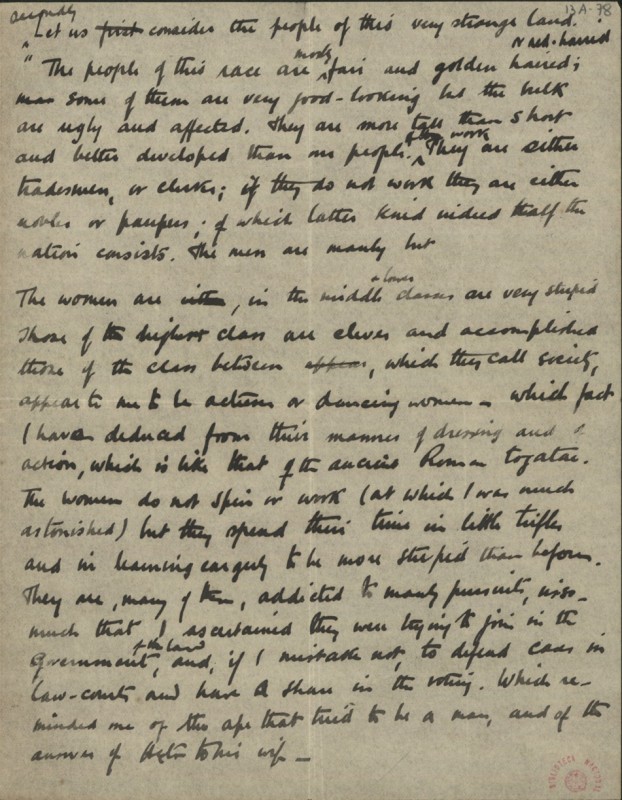 secondly 13A-78
"Let us first consider the people of this very strange land.
mostly or red-haired
"The people of this race are fair and golden haired;
man some of them are very good-looking but the bulk
are ugly and affected. They are more tall than short
of them work
and better developed than our people. They are either
tradesmen, or clerks; if they do not work they are either
nobles or paupers; of which latter kind indeed half the
nation consists. The men are manly but
& lower
The women are either, in the middle classes are very stupid
those of the highest class are clever and accomplished
those of the class between appear, which they call society,
appear to me to be actresses or dancing women — which fact
I have deduced from their manner of dressing and of
action, which is like that of the ancient Roman togatae.
The women do not spin or work (at which I was much
astonished) but they spend their time in little trifles
and in learning eagerly to be more stupid than before.
They are, many of them, addicted to manly pursuits, inso-
much that I ascertained they were trying to join in the
of the land
government, and, if I mistake not, to defend cases in
law-courts and have a share in the voting. Which re-
minded me of the ape that tried to be a man, and of the
answer of to his wife —
BIBLIOTECA NACIONAL